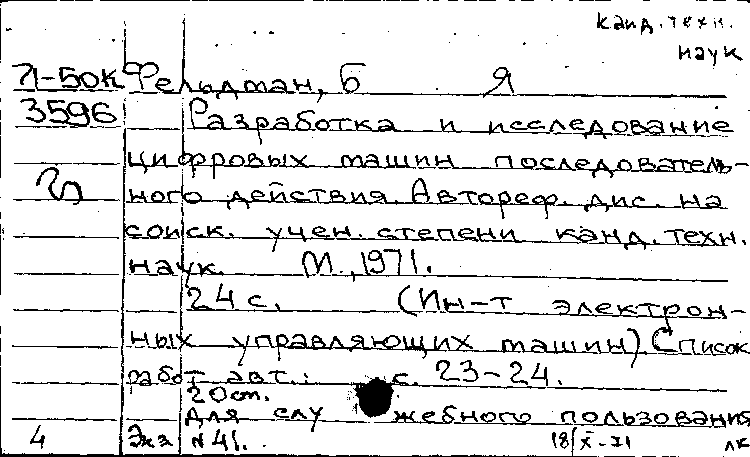 канд. техн.
наук
71-50к Фельдман, Б Я
3596 Разработка и исследование
цифровых машин последователь-
ного действия. Автореф. дис. на
соиск. учен. степени канд. техн.
наук. М., 1971.
24 с. (Ин-т электрон-
ных управляющих машин). Список
работ авт.: с. 23-24.
20 ст.
Для служебного пользования
4 Экз №41. 18/X-71 ЛК